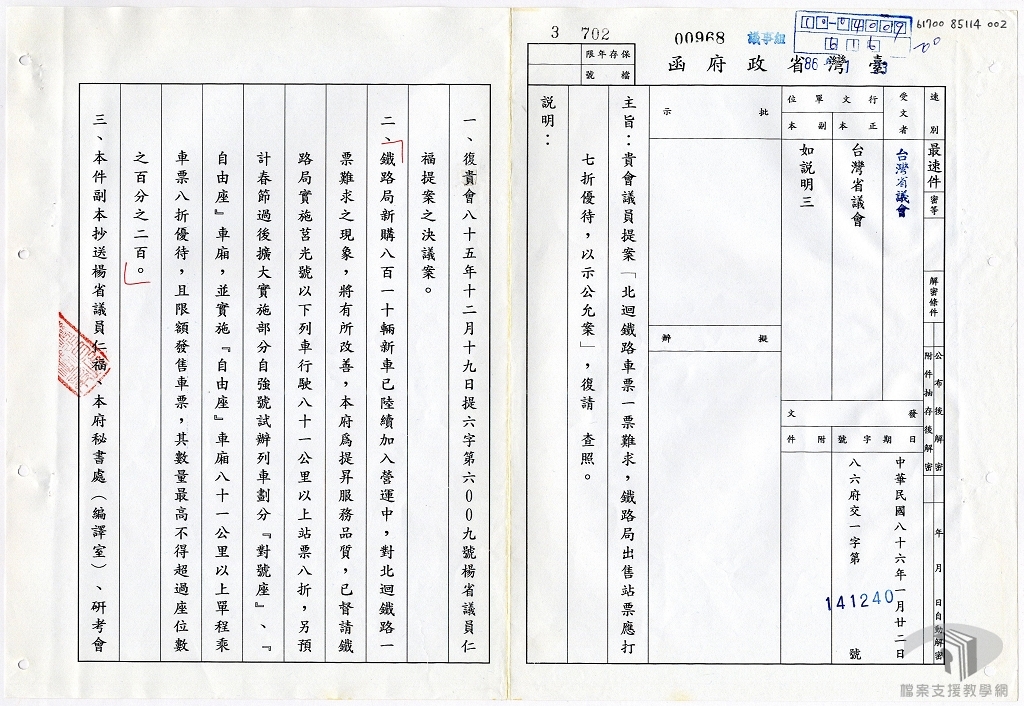 61700 85114 002
3 702
00968
議事組
保存年限
檔號
臺灣省政府函
速別
最速件
密等
解密條件
公布後解密
附件抽存後解密
年月日自動解密
受文者
台灣省議會
行文單位
正本
台灣省議會
副本
如說明三
發文
日期
中華民國八十六年一月廿二日
字號
八六府交一字第
141240
號
附件
批示
擬辦
主旨：貴會議員提案「北迴鐵路車票一票難求，鐵路局出售站票應打
七折優待，以示公允案」，復請 查照。
說明：
一、復貴會八十五年十二月十九日提六字第六００九號楊省議員仁
福提案之決議案。
二、鐵路局新購八百一十輛新車已陸續加入營運中，對北迴鐵路一
票難求之現象，將有所改善，本府為提昇服務品質，已督請鐵
路局實施莒光號以下列車行駛八十一公里以上站票八折，另預
計春節過後擴大實施部分自強號試辦列車劃分『對號座』、『
自由座』車廂，並實施『自由座』車廂八十一公里以上單程乘
車票八折優待，且限額發售車票，其數量最高不得超過座位數
之百分之二百。
三、本件副本抄送楊省議員仁福、本府秘書處（編譯室）、研考會
檔案支援教學網